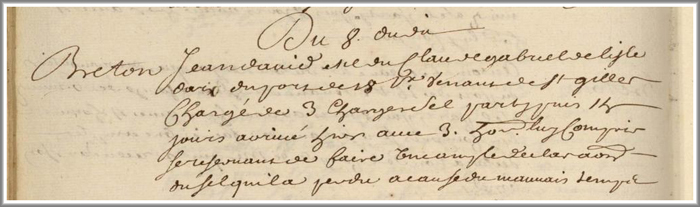 Du 8. dudit
Breton Jean david Me du Claude gabriel de lisle
daix du port de 18 Tx Venant de St gilles
Chargé de 3 Charges sel party puis 14
jours arrivé hier avec 3. hom. luy Compris
se reservant de faire Une ample declaraon
du sel quil a perdu a cause du mauvais temps